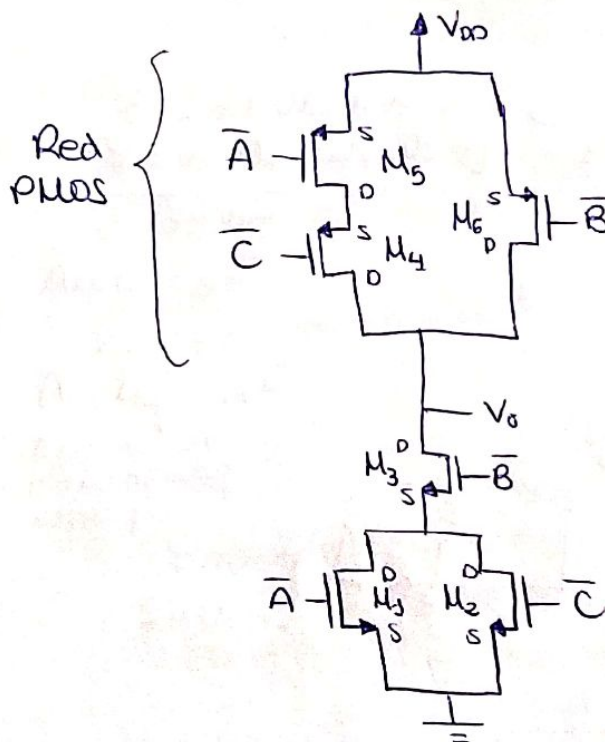 V_DD
Red
PMOS
A̅
S
M₅
D
C̅
S
M₄
D
S
M₆
D
B̅
V₀
D
M₃
S
B̅
A̅
D
M₁
S
D
M₂
S
C̅